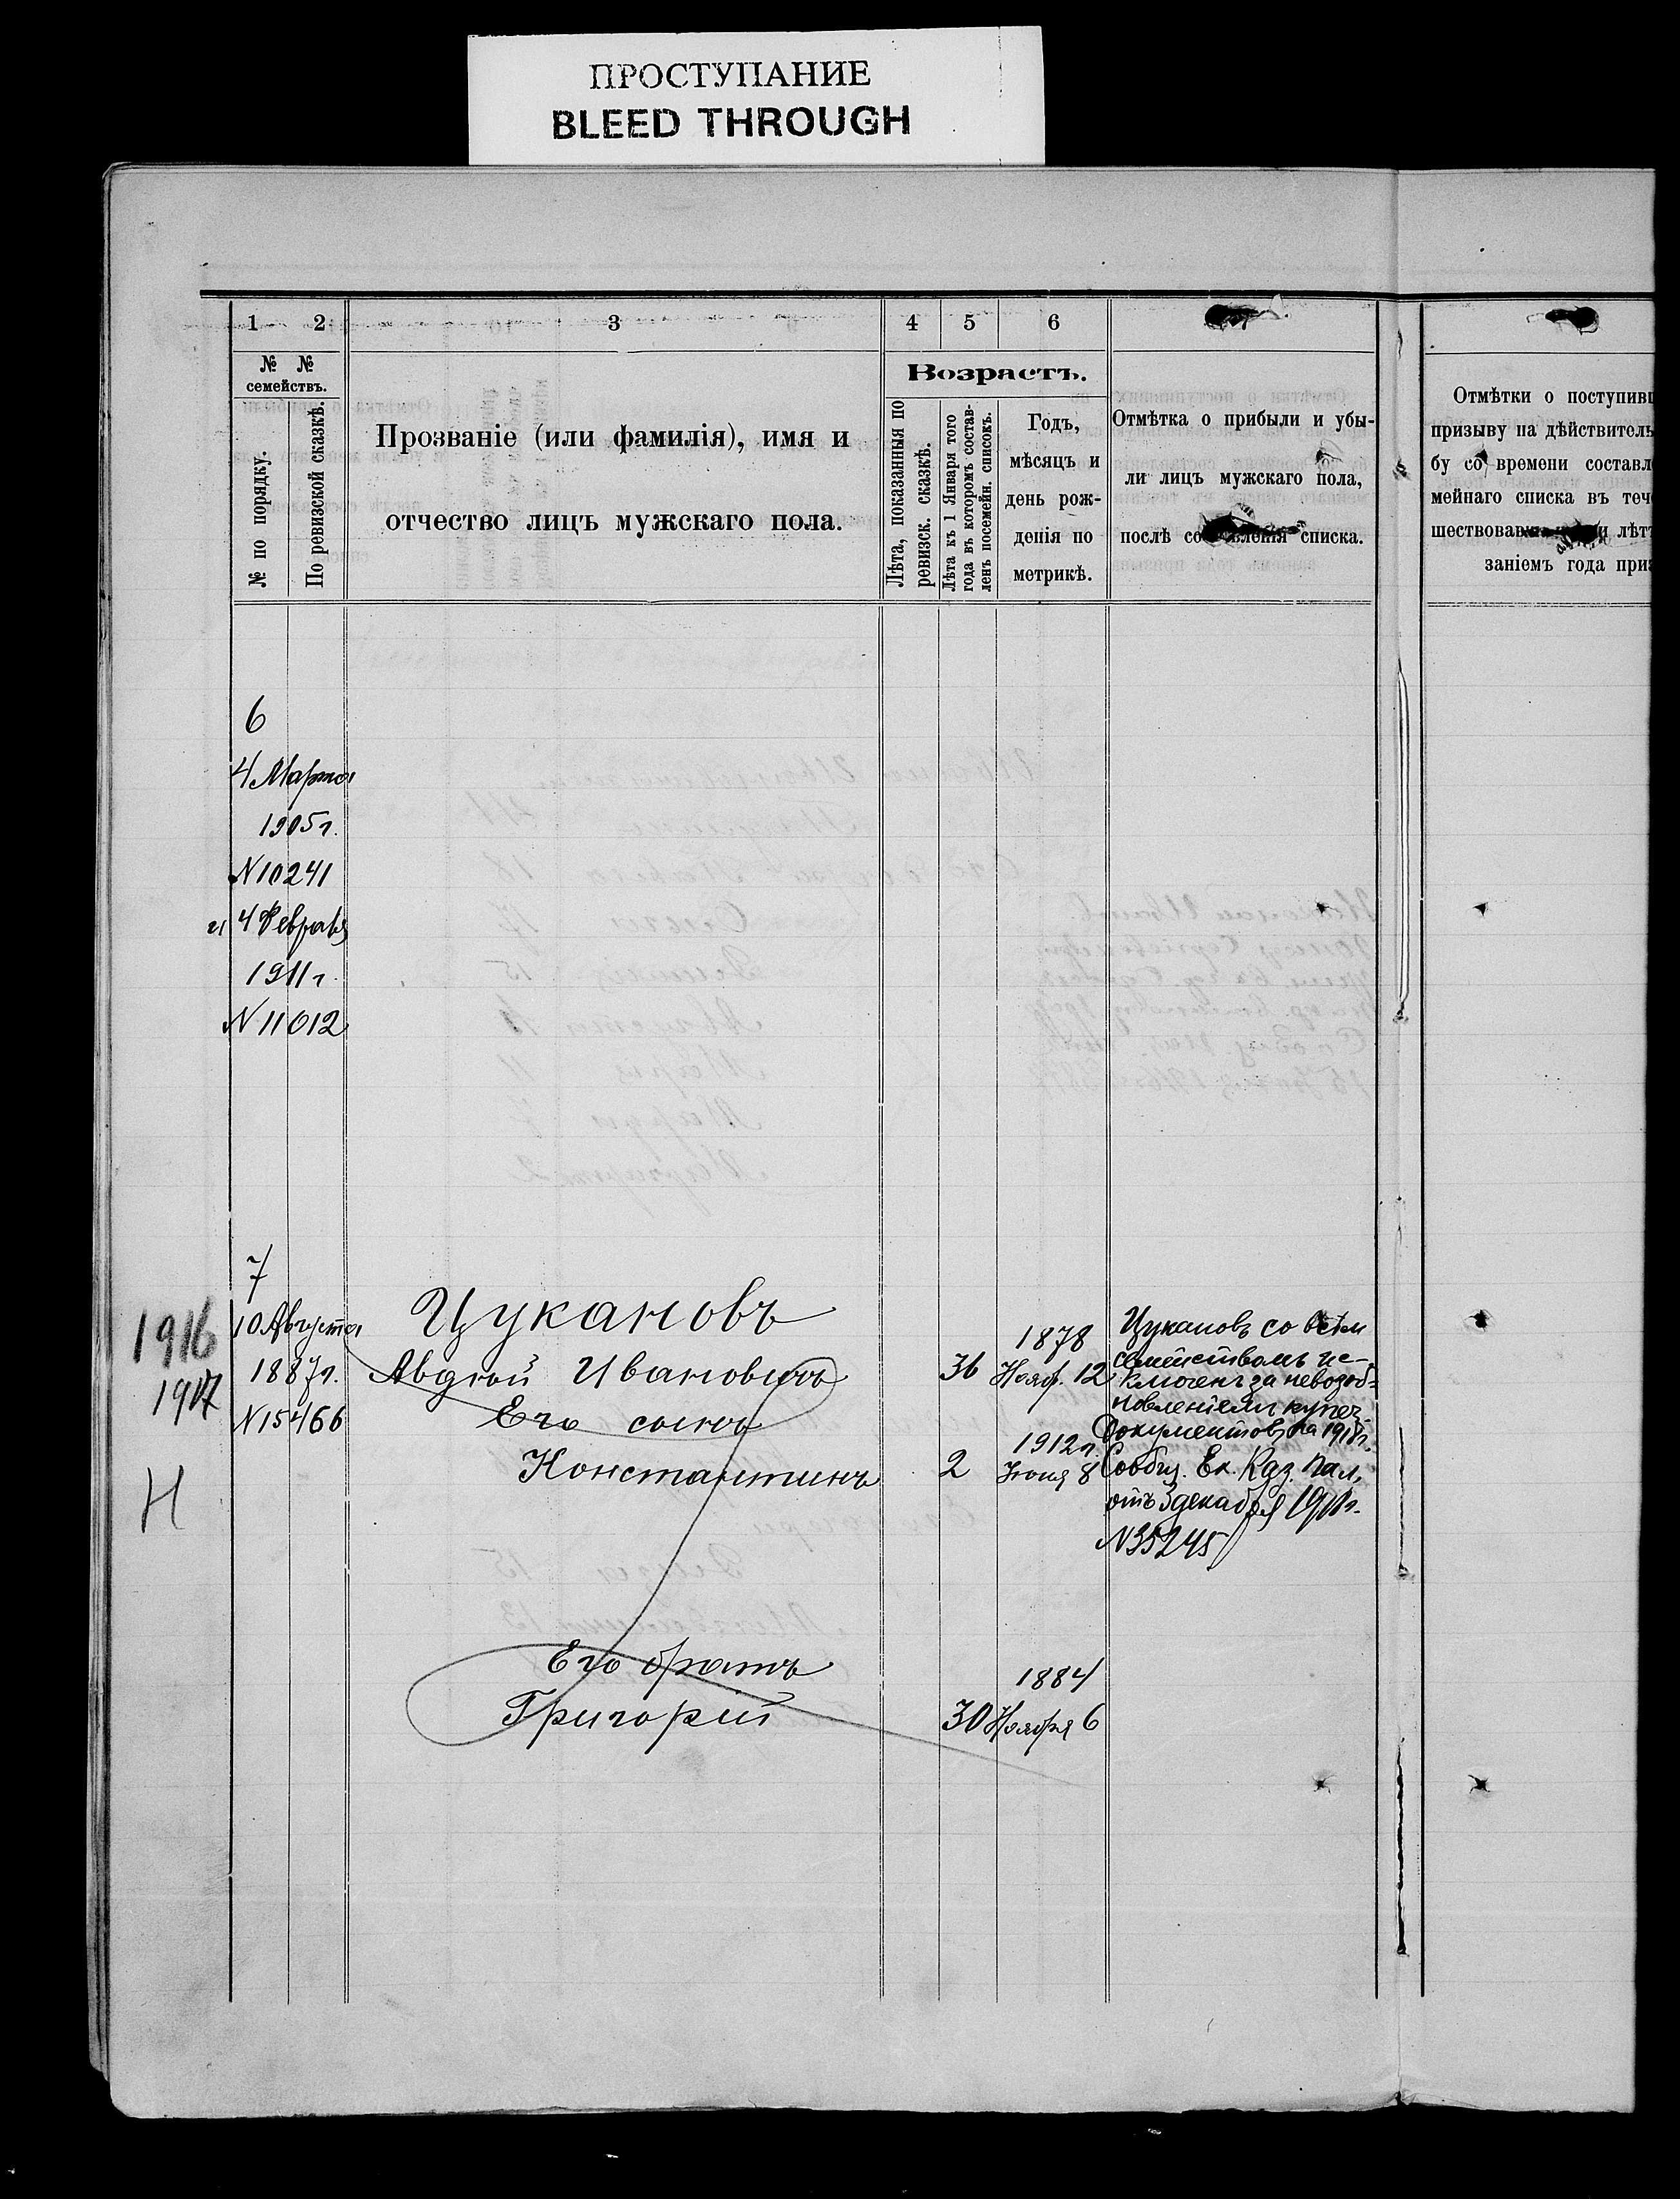 ПРОСТУПАНИЕ
BLEED THROUGH
1 2 3 4 5 6
№ № семействъ.
№ по порядку.
По ревизской сказкѣ.
Прозваніе (или фамилія), имя и
отчество лицъ мужскаго пола.
Возрастъ.
Лѣта, показанныя по
ревизск. сказкѣ.
Лѣта къ 1 Января того
года въ которомъ состав-
ленъ посемейн. списокъ.
Годъ,
мѣсяцъ и
день рож-
денія по
метрикѣ.
Отмѣтка о прибыли и убы-
ли лицъ мужскаго пола,
послѣ составленія списка.
Отмѣтки о поступивш
призыву на дѣйствитель
бу со времени составл
мейнаго списка въ теч
шествовавш и лѣт
заніемъ года приз
6
4 Марта
1905 г.
N 10241
и 4 Февраля
1911 г.
N 11012
7
10 Августа
1887 г.
N 15466
1916
1917
Н
Цукановъ
Авдкой Ивановичъ 36 1878 Нояб. 12
Его сынъ
Константинъ 2 1912 г. Іюня 8
Его братъ
Григорій 30 1884 Ноября 6
Цукановъ со всѣм
семействомъ ис-
ключенъ за невозоб-
новленіемъ купеч.
документовъ на 1918 г.
Сообщ. Ек. Каз. Пал.
отъ 3 декабря
N 35245